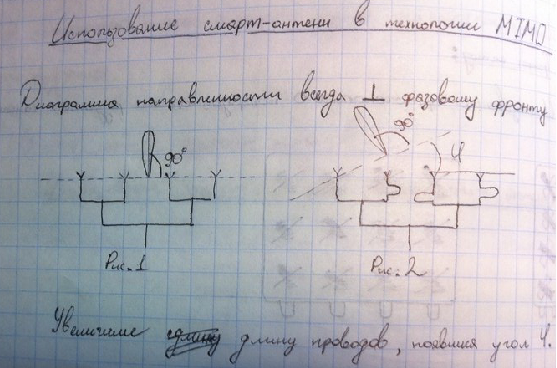 Использование смарт-антенн в технологии MIMO
Диаграмма направленности всегда ⊥ фазовому фронту
90°
90°
φ
Рис. 1
Рис. 2
Увеличение длину проводов, появился угол φ.